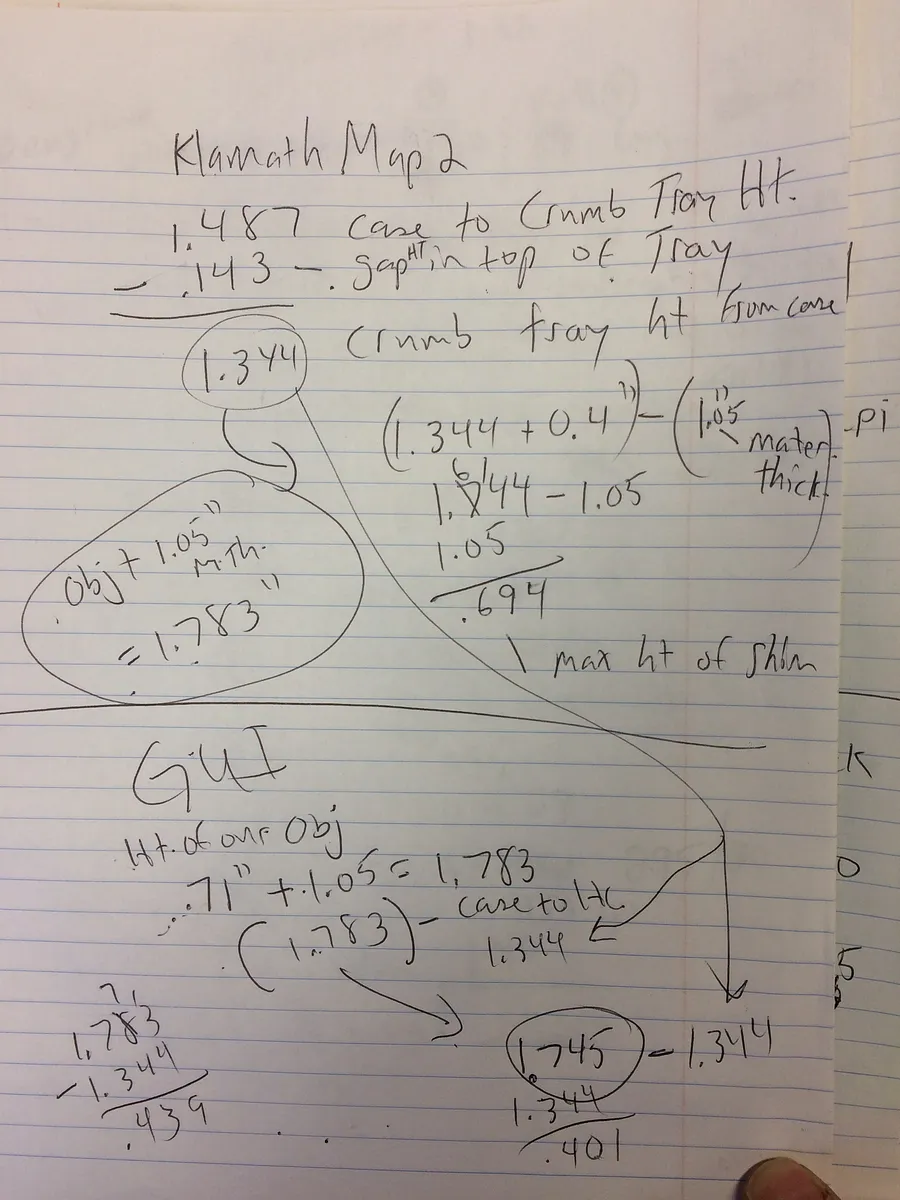 Klamath Map 2
1.487 case to Crumb Tray Ht.
- .143 - gap HT in top of Tray
1.344 Crumb tray ht from case
(1.344 + 0.4") - (1.05" mater. thick.
1.744 - 1.05
1.05
.694
max ht of
Obj + 1.05" M.Th.
= 1.783"
GUI
Ht. of our Obj
.71" + 1.05 = 1.783
(1.783) - case to
1.344
1.783
- 1.344
.439
1.745 - 1.344
1.344
.401
pi
K
0
5